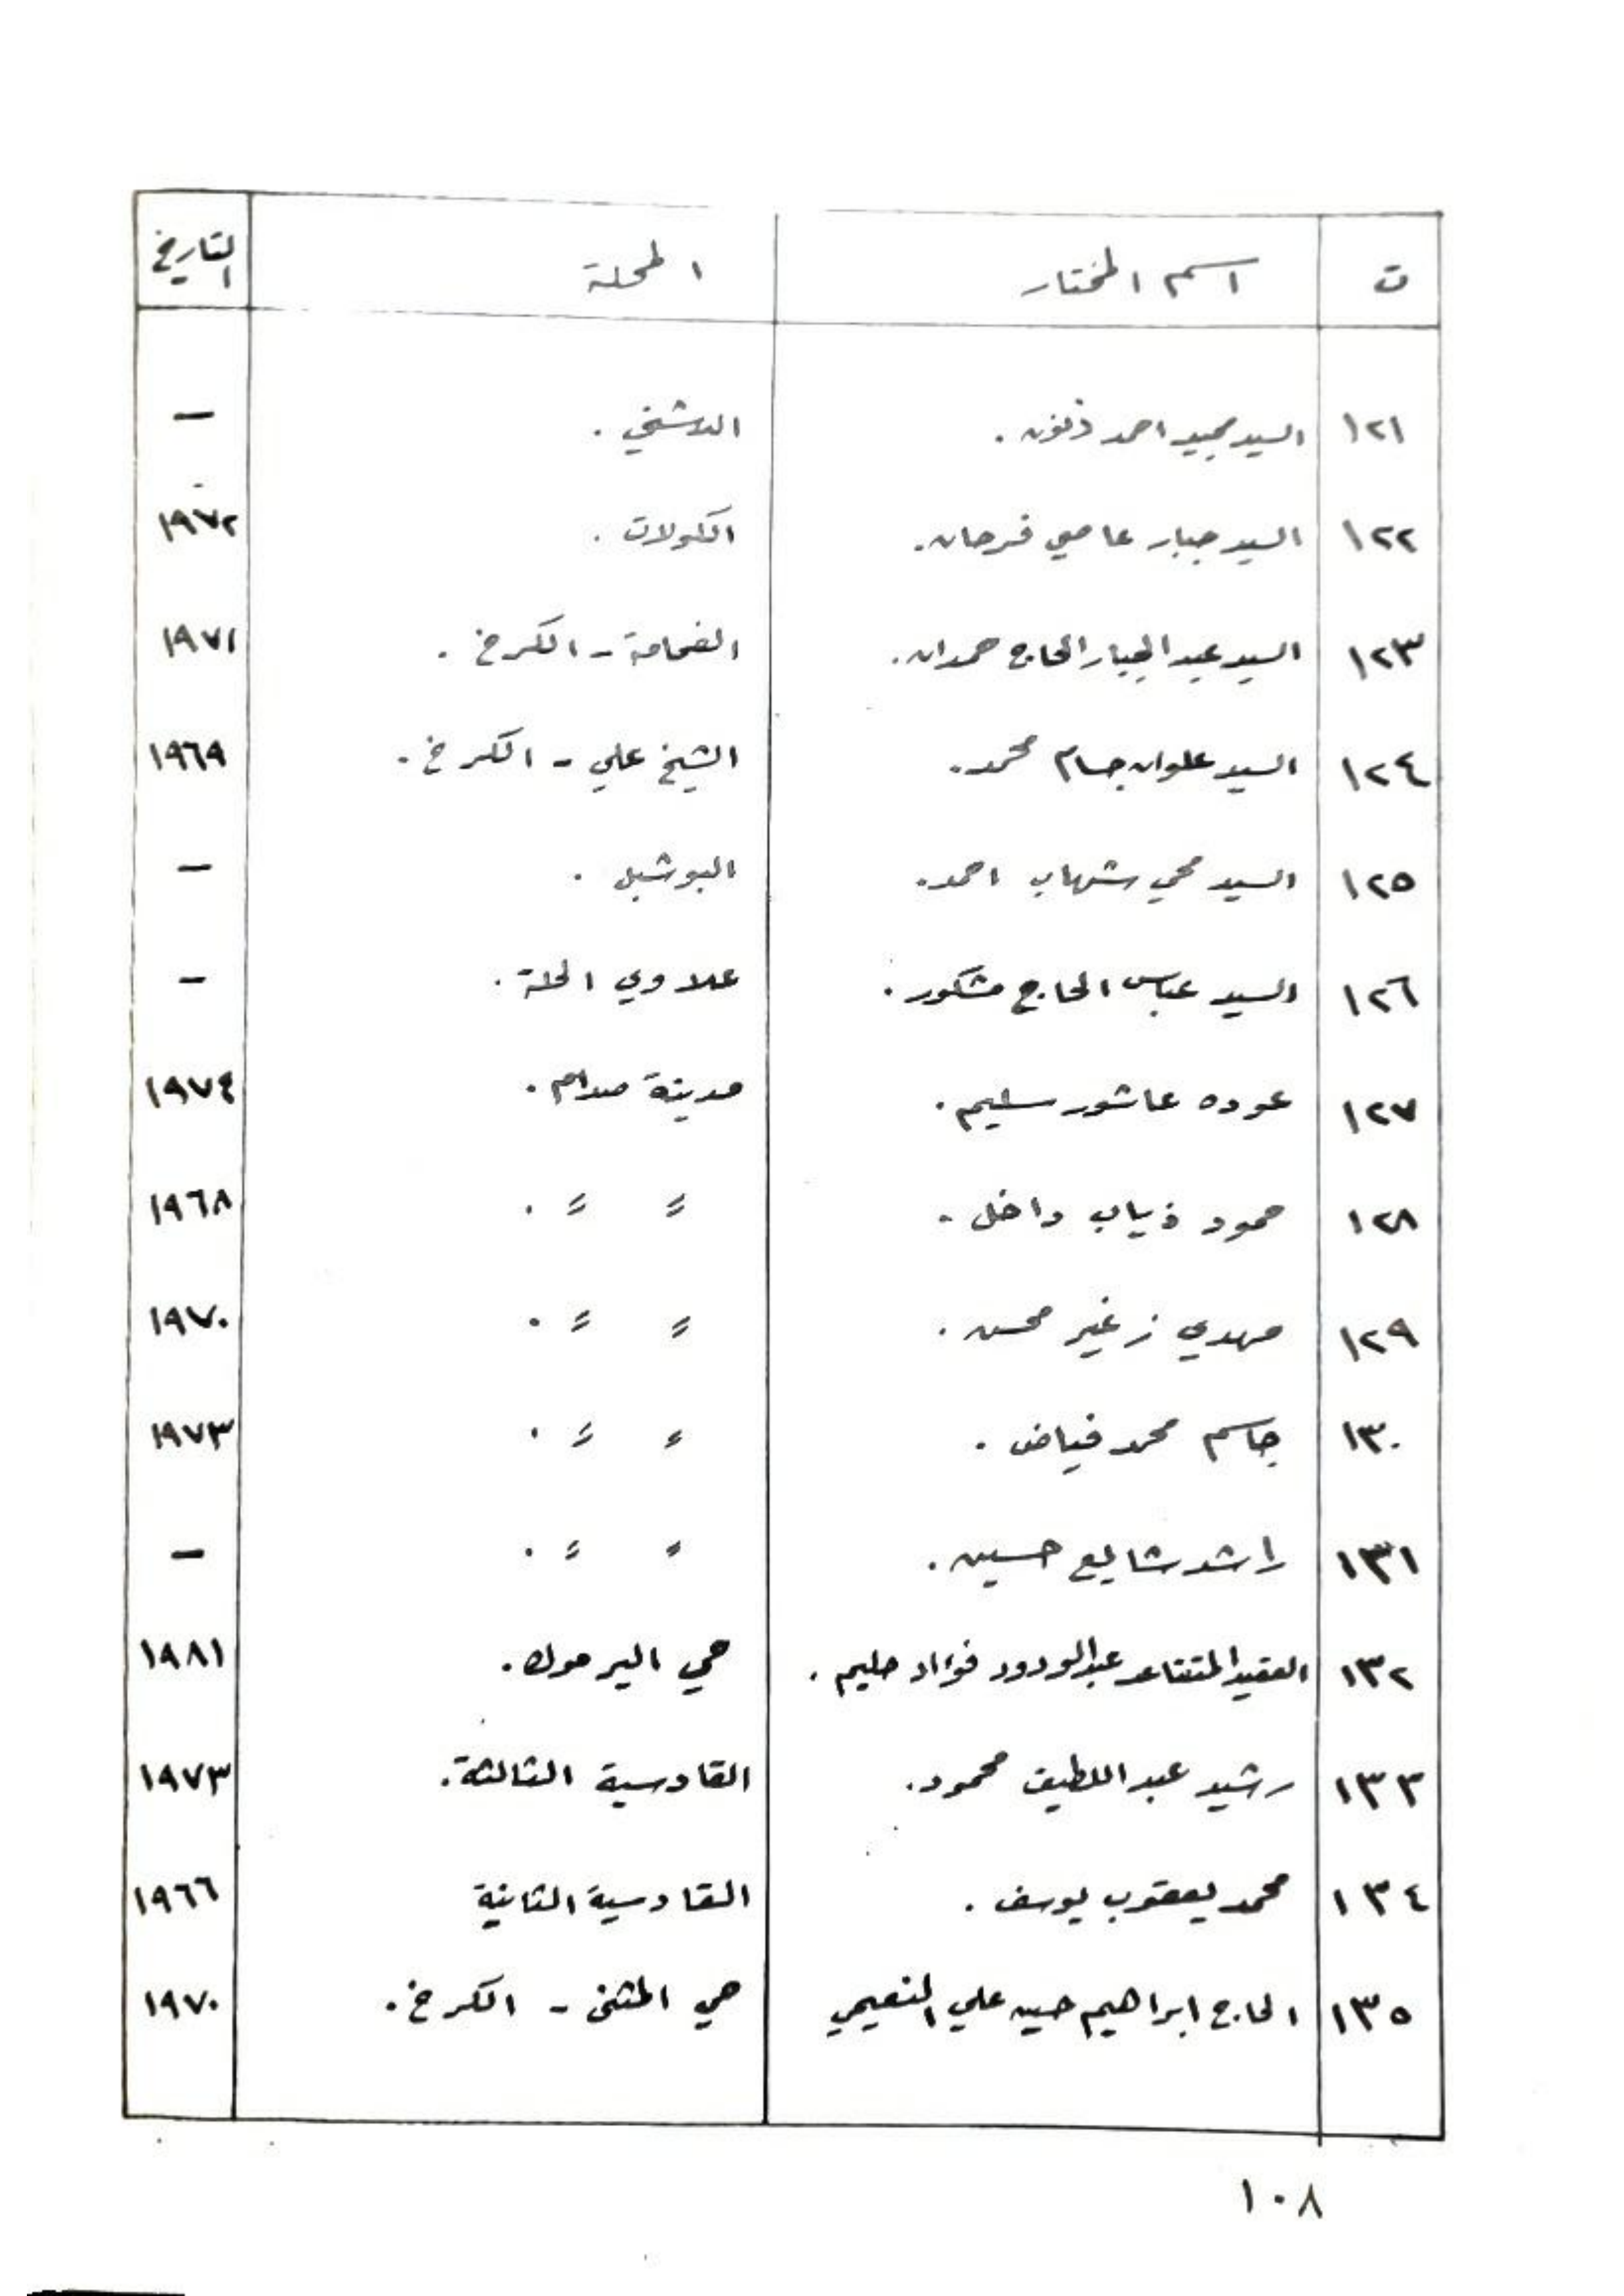 ت اسم المختار المحلة التاريخ
١٢١ السيد مجيد احمد ذنون . الدشتي . —
١٢٢ السيد جبار عاصي فرحان . الكولات . ١٩٧٢
١٢٣ السيد عبد الجبار الحاج حمدان . الفحامة - الكرخ . ١٩٧١
١٢٤ السيد علوان جسام محمد . الشيخ علي - الكرخ . ١٩٦٩
١٢٥ السيد محي شهاب احمد . البوشبل . —
١٢٦ السيد عباس الحاج مشكور . علاوي الحلة . —
١٢٧ عوده عاشور سليم . مدينة صدام . ١٩٧٤
١٢٨ حمود ذياب داخل . = = . ١٩٦٨
١٢٩ مهدي زغير محسن . = = . ١٩٧٠
١٣٠ جاسم محمد فياض . = = . ١٩٧٣
١٣١ راشد شايع حسين . = = . —
١٣٢ العقيد المتقاعد عبدالودود فؤاد حليم . حي اليرموك . ١٩٨١
١٣٣ رشيد عبد اللطيف محمود . القادسية الثالثة . ١٩٧٣
١٣٤ محمد يعقوب يوسف . القادسية الثانية ١٩٦٦
١٣٥ الحاج ابراهيم حسين علي النعيمي حي المثنى - الكرخ . ١٩٧٠
١٠٨